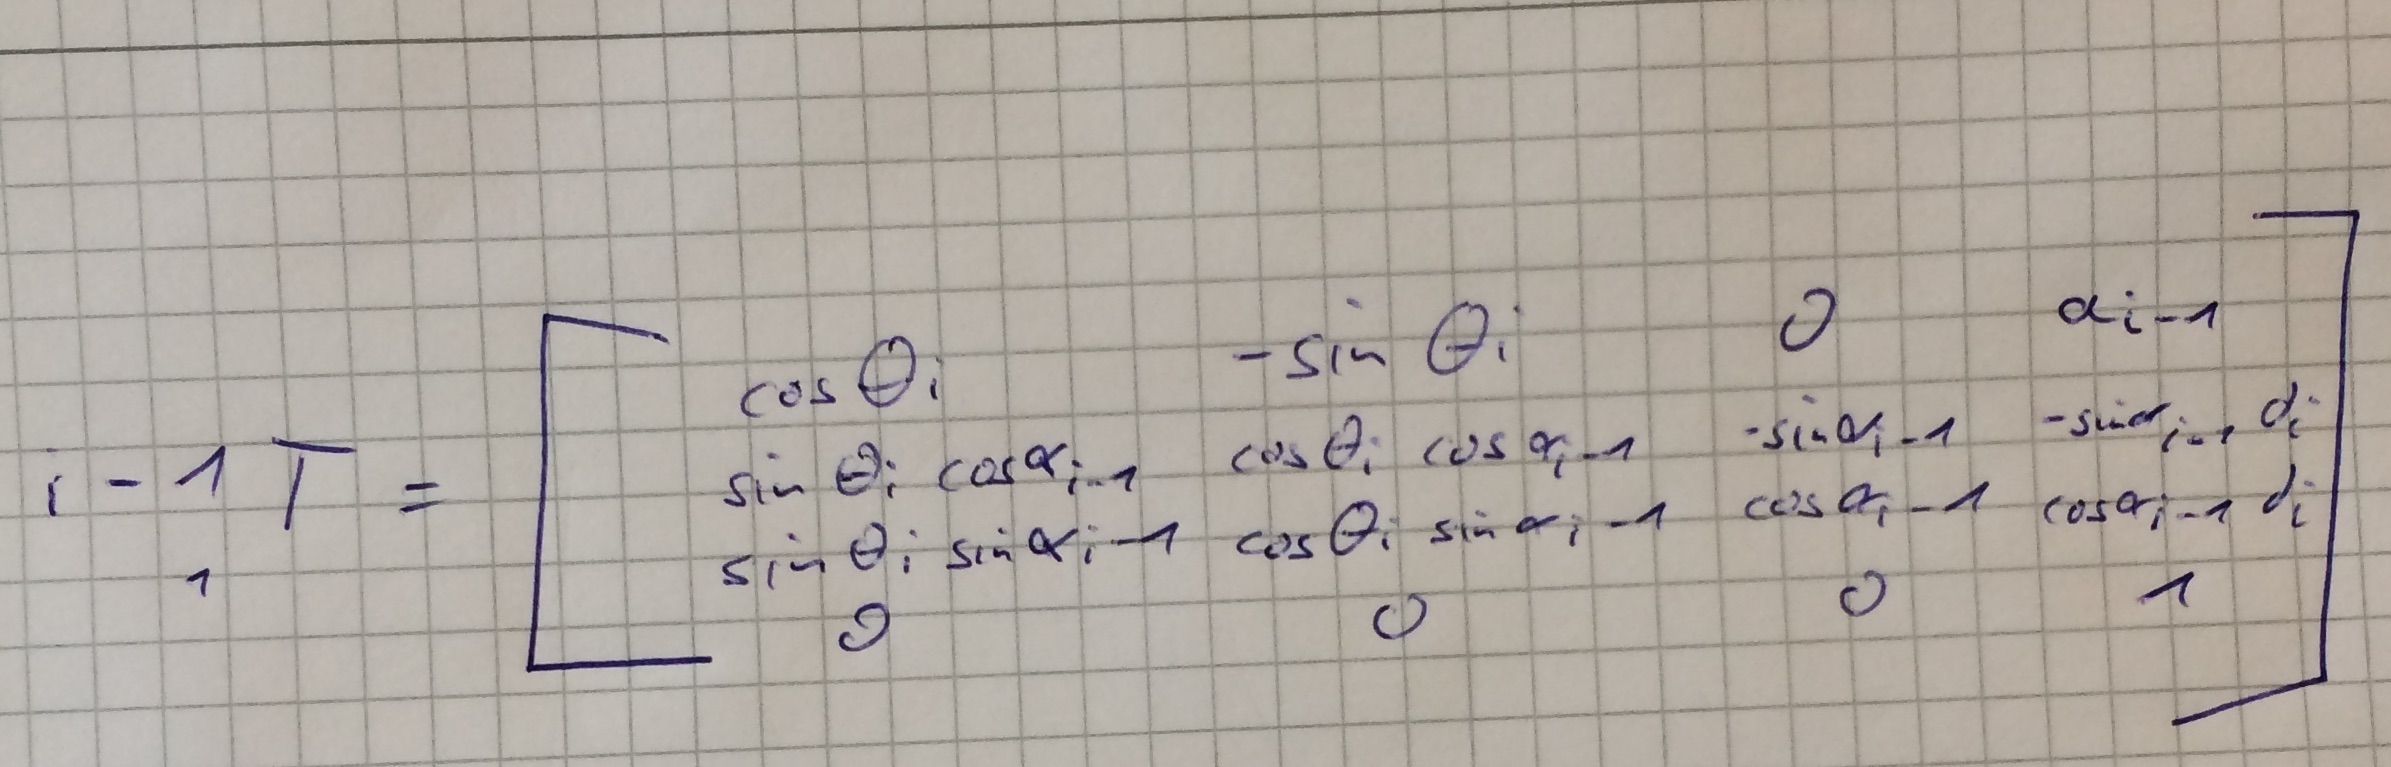 cos θi -sin θi 0 αi-1
sin θi cos αi-1 cos θi cos αi-1 -sin αi-1 -sin αi-1 di
i-1 T =
sin θi sin αi-1 cos θi sin αi-1 cos αi-1 cos αi-1 di
1
0 0 0 1